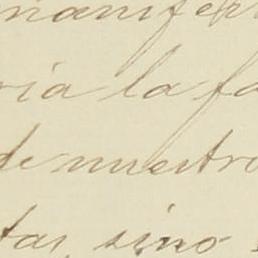 manifer
ria la fa
de nuestro
tas, sino